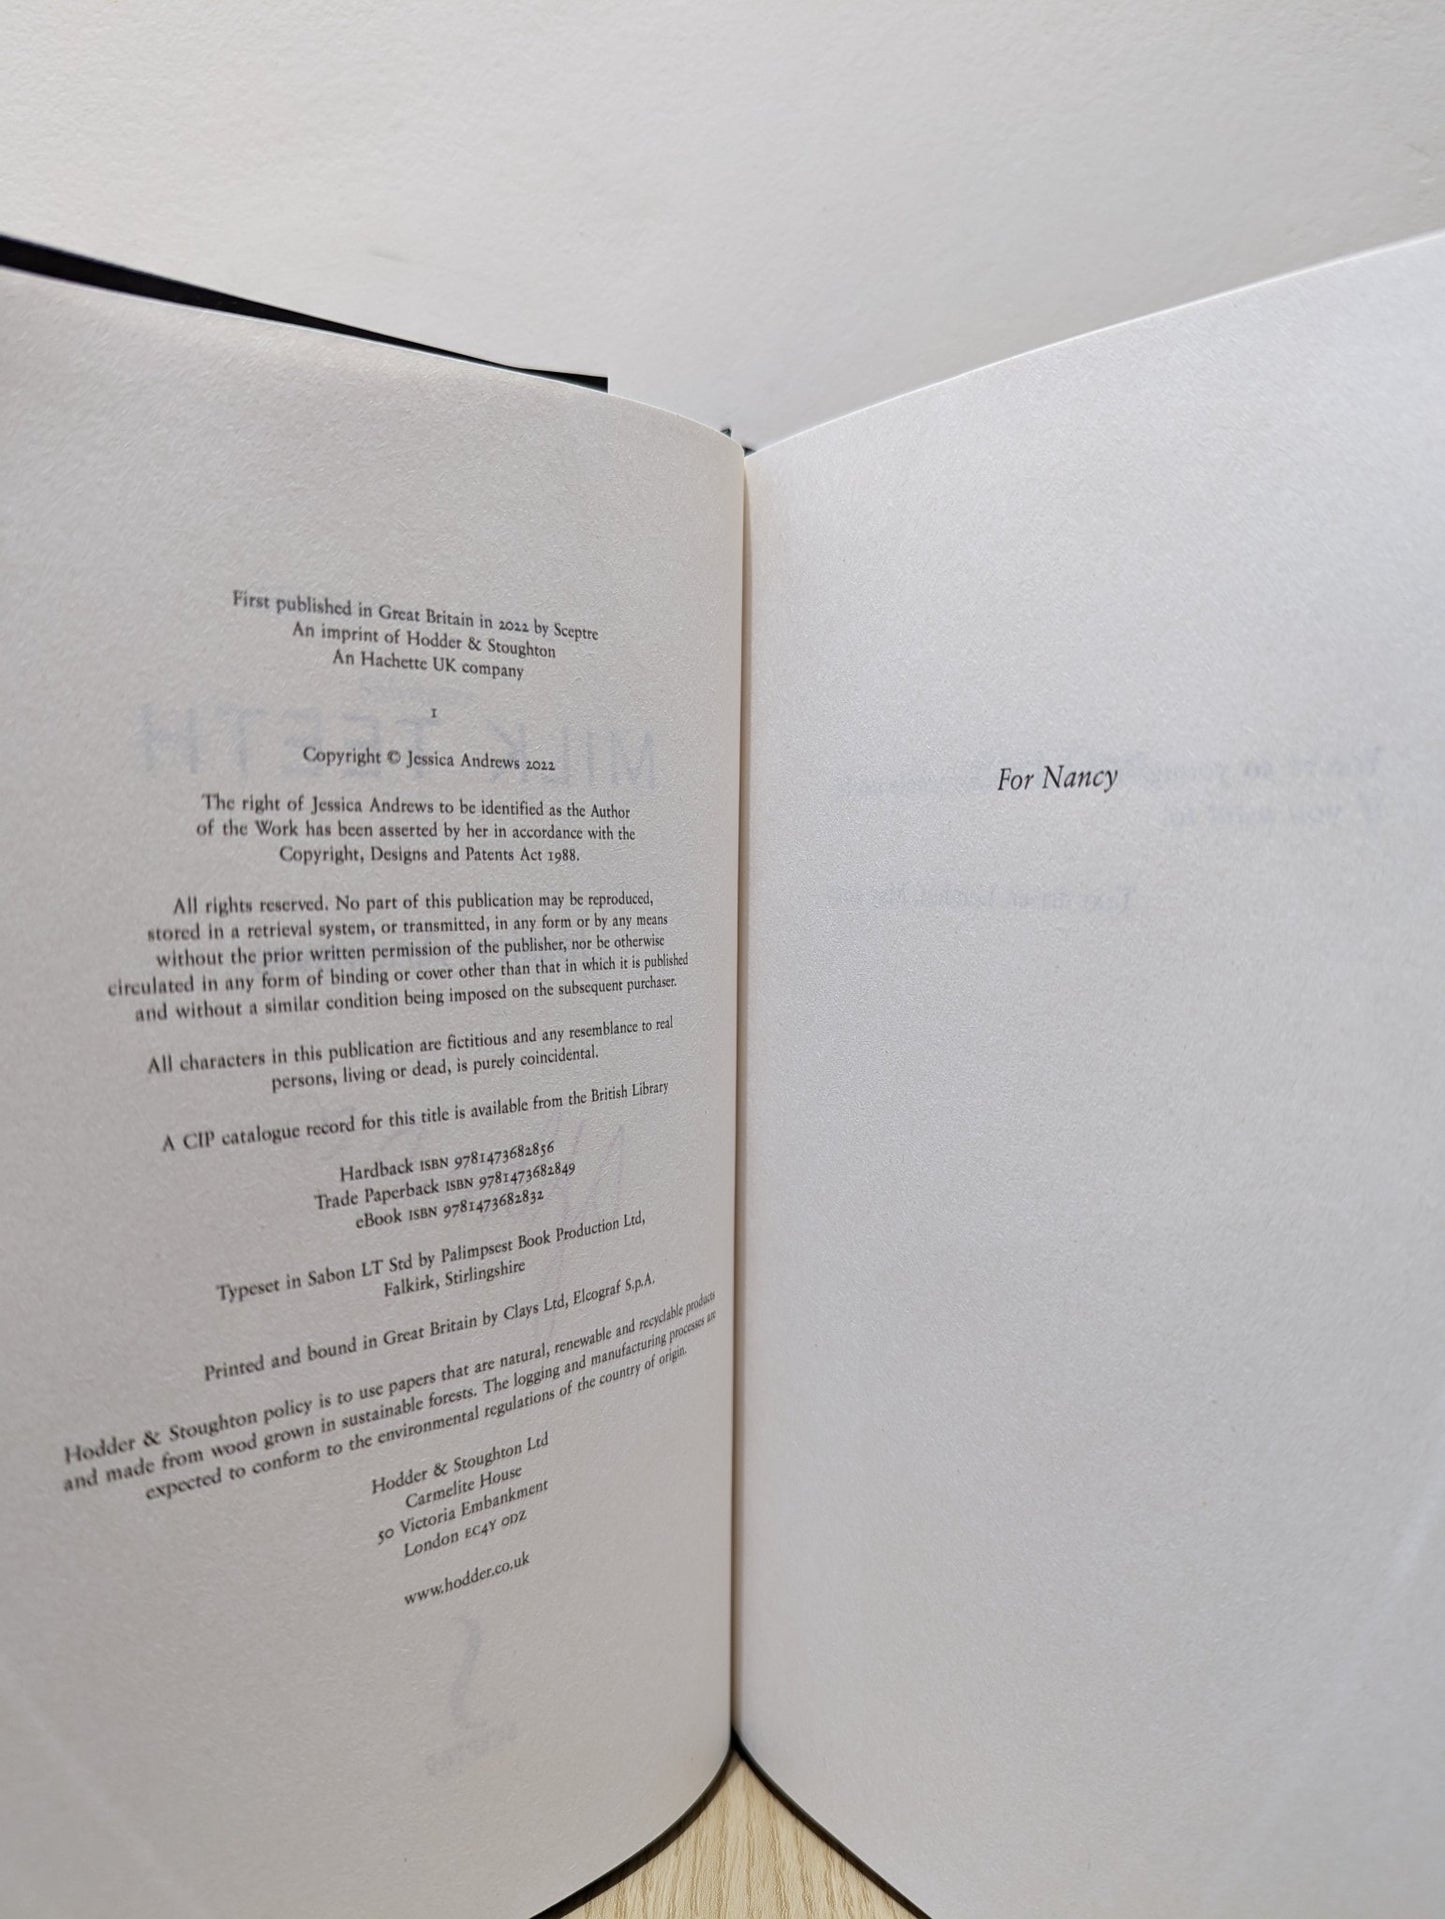 First published in Great Britain in 2022 by Sceptre
An imprint of Hodder & Stoughton
An Hachette UK company
1
Copyright © Jessica Andrews 2022
The right of Jessica Andrews to be identified as the Author
of the Work has been asserted by her in accordance with the
Copyright, Designs and Patents Act 1988.
All rights reserved. No part of this publication may be reproduced,
stored in a retrieval system, or transmitted, in any form or by any means
without the prior written permission of the publisher, nor be otherwise
circulated in any form of binding or cover other than that in which it is published
and without a similar condition being imposed on the subsequent purchaser.
All characters in this publication are fictitious and any resemblance to real
persons, living or dead, is purely coincidental.
A CIP catalogue record for this title is available from the British Library
Hardback ISBN 9781473682856
Trade Paperback ISBN 9781473682849
eBook ISBN 9781473682832
Typeset in Sabon LT Std by Palimpsest Book Production Ltd,
Falkirk, Stirlingshire
Printed and bound in Great Britain by Clays Ltd, Elcograf S.p.A.
Hodder & Stoughton policy is to use papers that are natural, renewable and recyclable products
and made from wood grown in sustainable forests. The logging and manufacturing processes are
expected to conform to the environmental regulations of the country of origin.
Hodder & Stoughton Ltd
Carmelite House
50 Victoria Embankment
London EC4Y 0DZ
www.hodder.co.uk
MILK TEETH
For Nancy